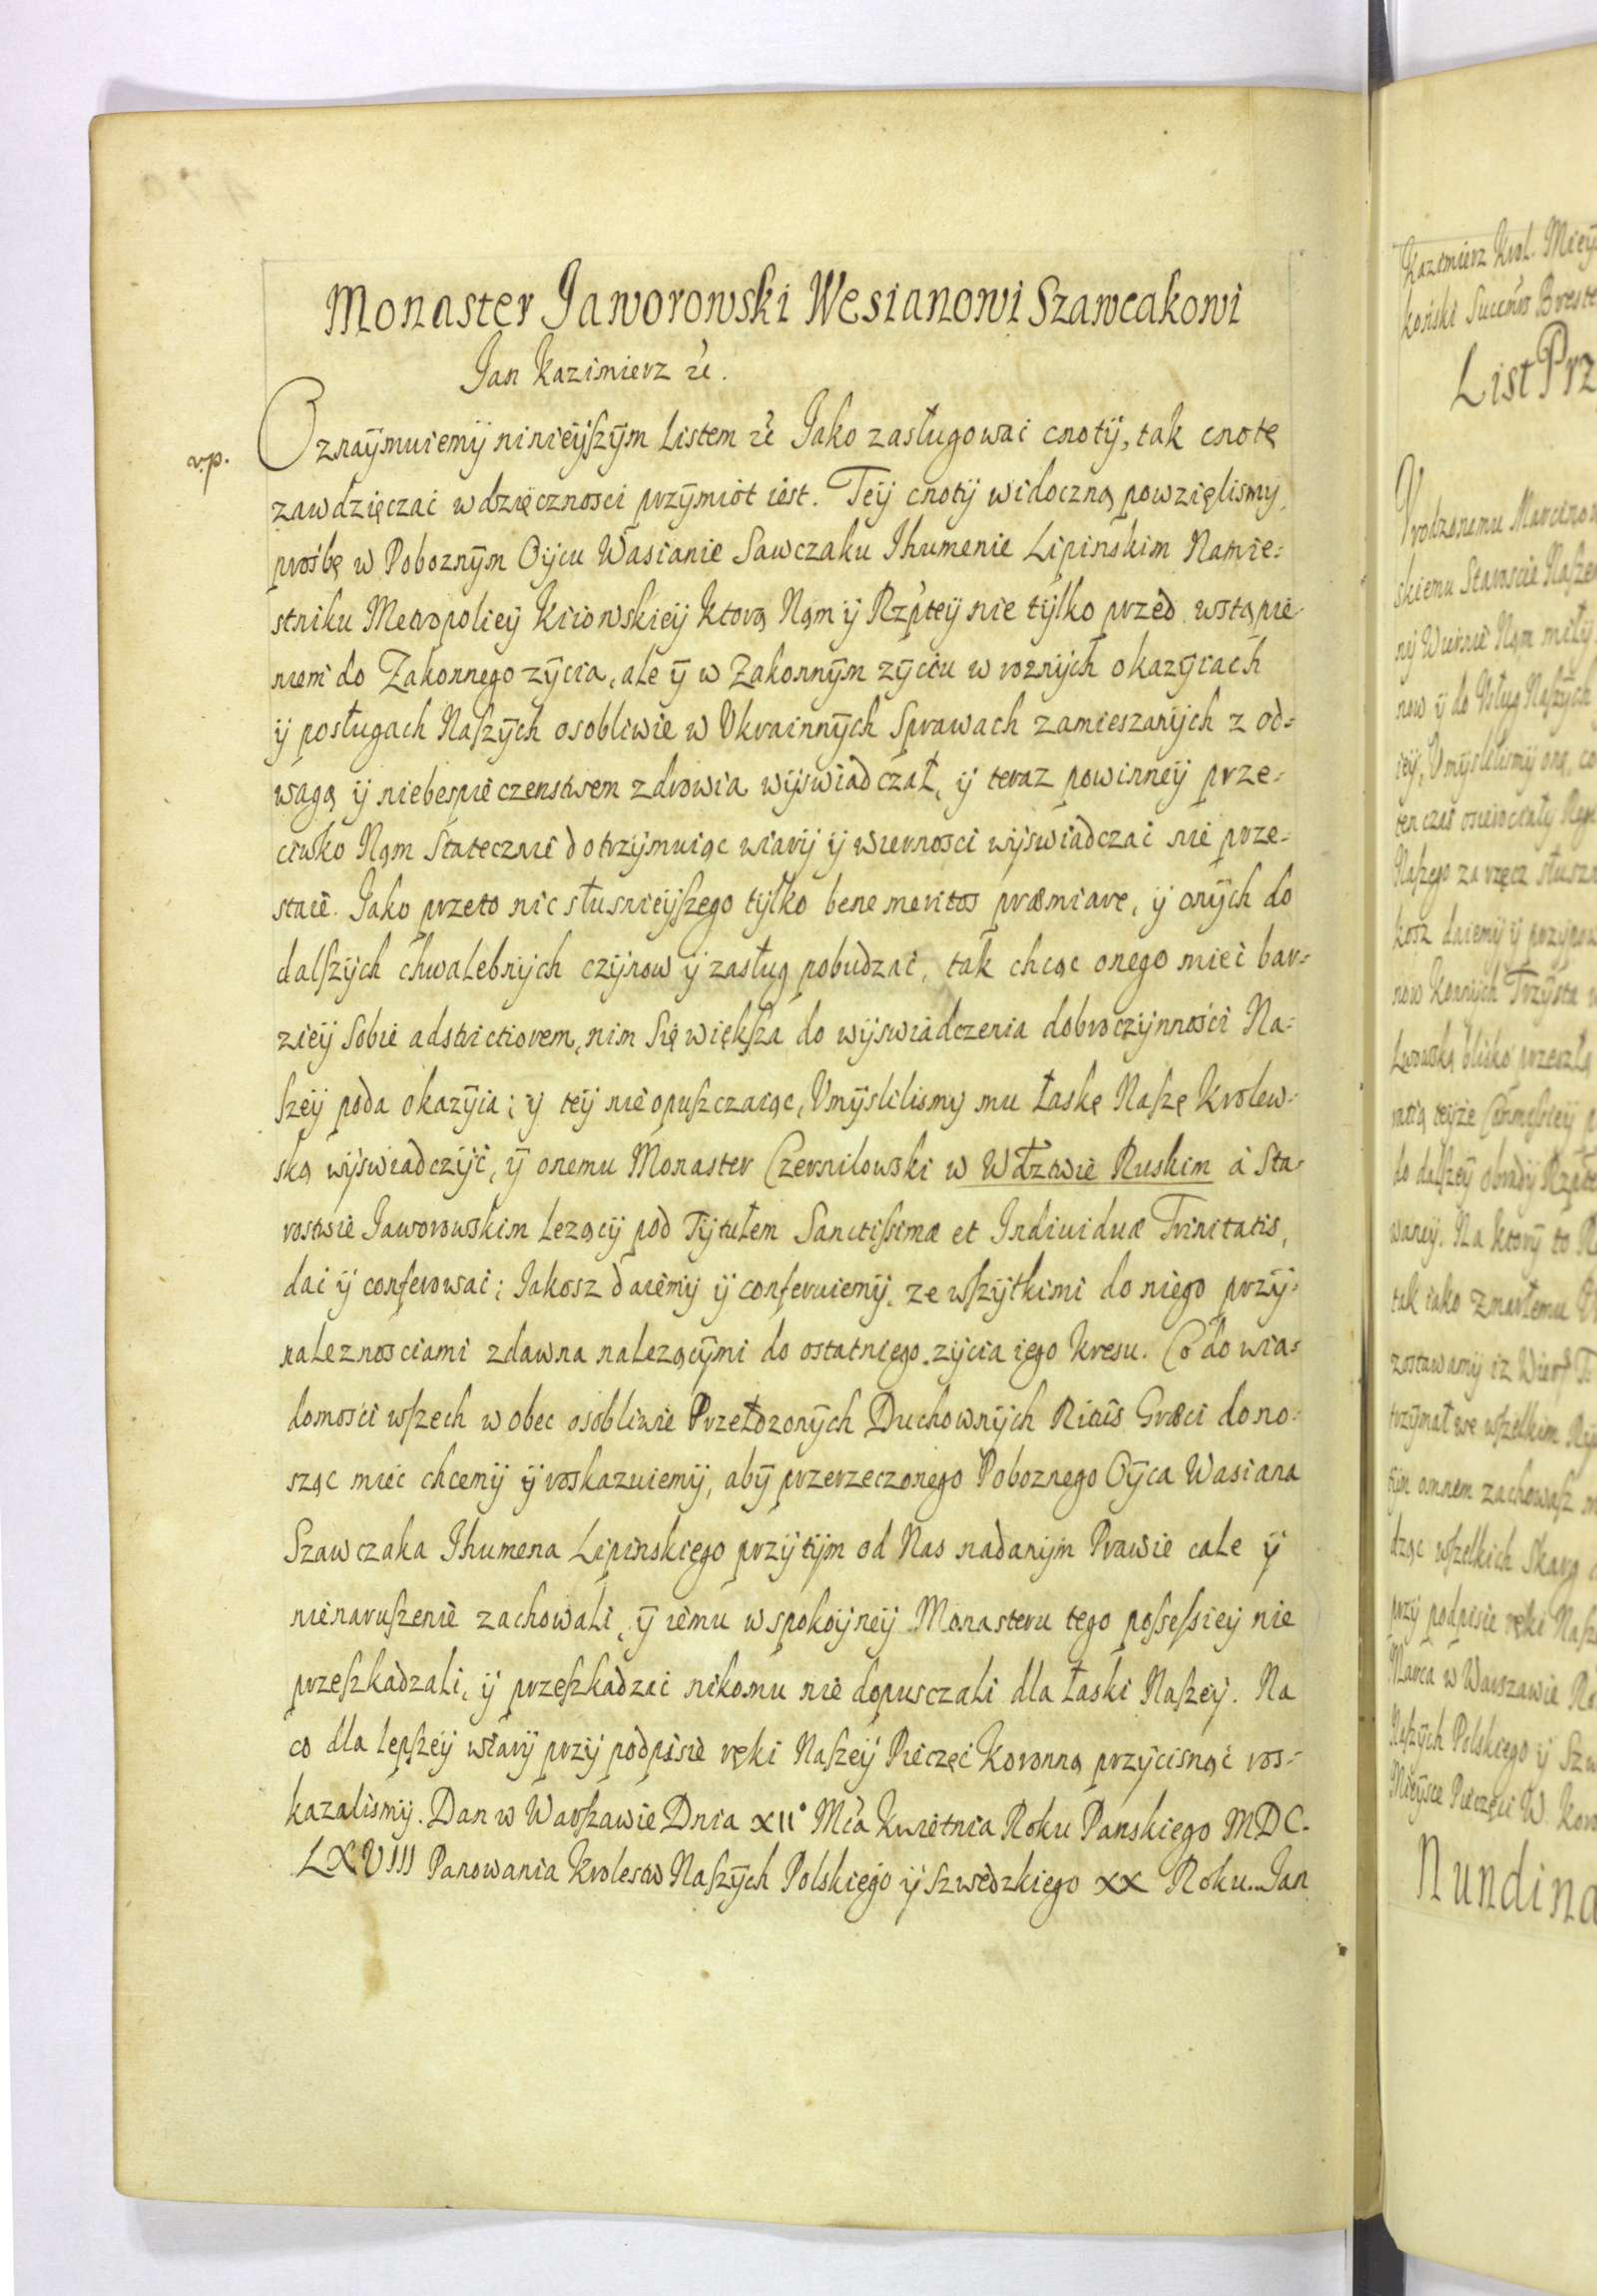 Monaster Jaworowski Wesianowi Szawcakowi
Jan Kazimierz &c.
v.p.
Oznaÿmuiemÿ ninieÿſzÿm Listem &c Jako zasługowai cnotÿ, tak cnotę
zawdzięczać wdzięcznosci przÿmiot iest. Teÿ cnotÿ widoczną powzięlismy
prośbę w Poboznÿm Oÿcu Wasianie Sawczaku Jhumenie Lipinskim Namie=
stniku Metropolieÿ Kiiowskieÿ ktorą Nąm ÿ Rzpteÿ nie tÿlko przed wstąpie
niem do Zakonnego zÿcia, ale ÿ w Zakonnÿm zÿciu w roznÿch okazÿiach
ÿ posługach Naſzÿch osobliwie w Vkrainnÿch Sprawach zamieszanÿch z od=
wagą ÿ niebespieczenstwem zdrowia wÿswiadczał, ÿ teraz powinneÿ prze=
ciwko Nąm Statecznie dotrzÿmuiąc wiarÿ ÿ wiernosci wÿswiadczać nie prze=
staie. Jako przeto nic słusnieÿſzego tÿlko bene meritos præmiare, ÿ onÿch do
dalſzÿch chwalebnÿch czÿnow ÿ zasług pobudzać, tak chcąc onego mieć bar=
zieÿ Sobie adstrictiorem, nim Się więkſza do wÿswiadczenia dobroczÿnności Na=
ſzeÿ poda okazÿia; ÿ teÿ nie opuſzczaiąc, Vmÿslilismy mu Łaskę Naſzę Krolew=
ską wÿswiadczÿć, ÿ onemu Monaster Czernilowski w Wdztwie Ruskim á Sta=
rostwie Jaworowskim lezącÿ pod Tÿtułem Sanctiſsimæ et Indiuiduæ Trinitatis,
dai ÿ conferowai; Jakosz daiemÿ ÿ conferuiemÿ, ze wſzÿtkimi do niego przÿ=
naleznosciami zdawna nalezącÿmi do ostatniego zÿcia iego kresu. Co do wia=
domości wſzech wobec osobliwie Przełozonÿch Duchownÿch Ritûs Græci dono=
sząc mieć chcemÿ ÿ roskazuiemÿ, abÿ przerzeczonego Poboznego Oÿca Wasiana
Szawczaka Jhumena Lipinskiego przÿ tÿm od Nas nadanÿm Prawie cale ÿ
nienaruſzenie zachowali, ÿ iemu w spokoÿneÿ Monasteru tego poſseſsieÿ nie
przeſzkadzali, ÿ przeſzkadzać nikomu nie dopusczali dla Łaski Naſzeÿ. Na
co dla lepſzeÿ wiarÿ przÿ podpisie ręki Naſzeÿ Pieczęć Koronną przÿcisnąć ros=
kazalismÿ. Dan w Warſzawie Dnia XII° Mca Kwietnia Roku Panskiego MDC.
LXVIII Panowania Krolestw Naſzÿch Polskiego ÿ Szwedzkiego XX Roku. Jan
Kazimierz Krol.
List Prz
Vrodzonemu
skiemu Staroscie Naſze
nÿ Wiernie Nąm miłÿ
now ÿ do Vsług Naſzÿch
Naſzego za rzecz słuszn
tak iako zmarłemu
dząc wſzelkich Skarg
przÿ podpisie ręki Naſz
Marca w Warszawie Ro
Naſzÿch Polskiego ÿ Szw
Mieÿsce Pieczęci W. Koro
Nundina